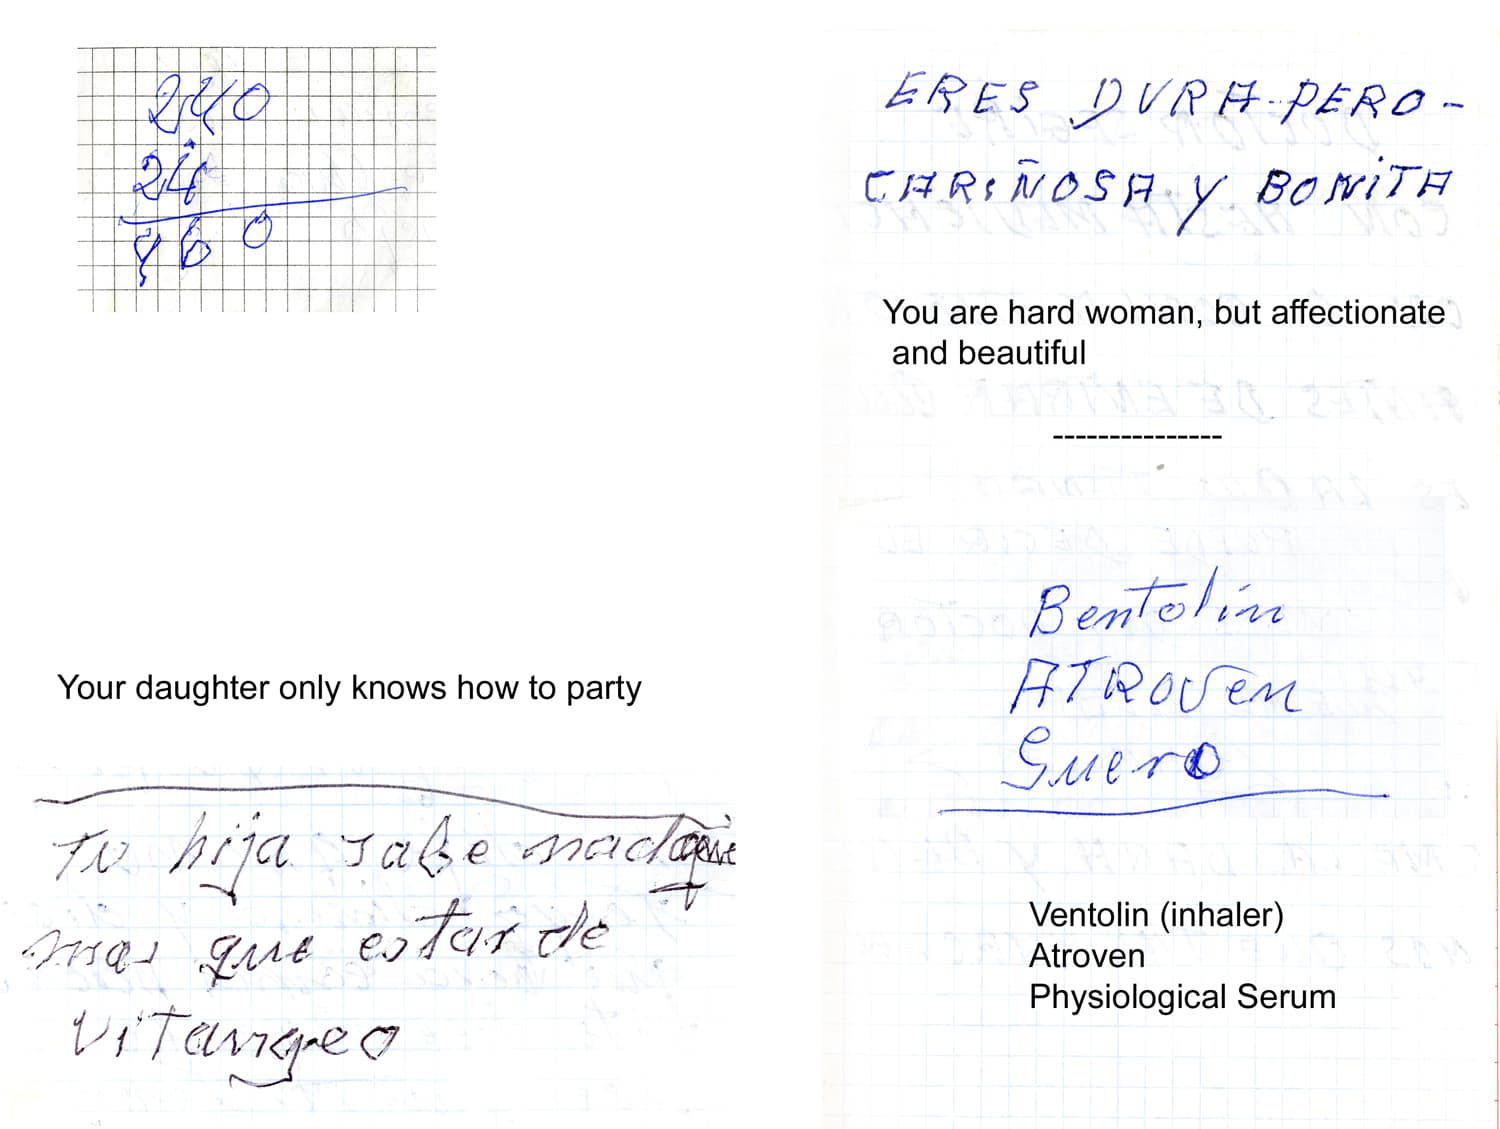 240
24
460
Your daughter only knows how to party
Tu hija sabe nada que
mas que estar de
vitangeo
ERES DURA-PERO-
CARiÑOSA Y BONiTA
You are hard woman, but affectionate
and beautiful
---------------
Bentolin
ATROVEN
Suero
Ventolin (inhaler)
Atroven
Physiological Serum